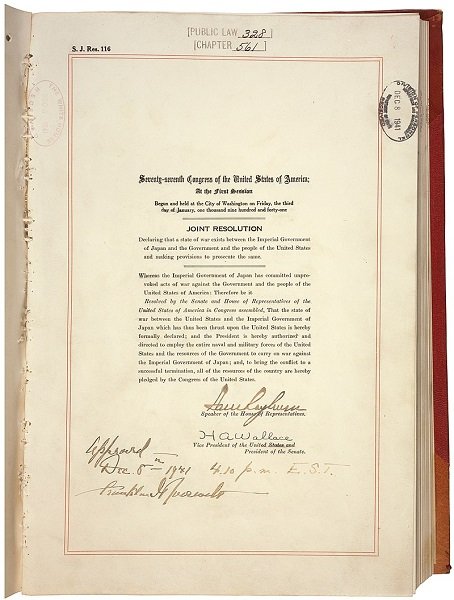 [PUBLIC LAW 328]
S. J. Res. 116
[CHAPTER 561]
DEC 8 1941
Seventy-seventh Congress of the United States of America;
At the First Session
Begun and held at the City of Washington on Friday, the third
day of January, one thousand nine hundred and forty-one
JOINT RESOLUTION
Declaring that a state of war exists between the Imperial Government
of Japan and the Government and the people of the United States
and making provisions to prosecute the same.
Whereas the Imperial Government of Japan has committed unpro-
voked acts of war against the Government and the people of the
United States of America: Therefore be it
Resolved by the Senate and House of Representatives of the
United States of America in Congress assembled, That the state of
war between the United States and the Imperial Government of
Japan which has thus been thrust upon the United States is hereby
formally declared; and the President is hereby authorized and
directed to employ the entire naval and military forces of the United
States and the resources of the Government to carry on war against
the Imperial Government of Japan; and, to bring the conflict to a
successful termination, all of the resources of the country are hereby
pledged by the Congress of the United States.
Sam Rayburn
Speaker of the House of Representatives.
H A Wallace
Vice President of the United States and
President of the Senate.
Approved
Dec. 8th 1941 4.10 p.m. E.S.T.
Franklin D Roosevelt